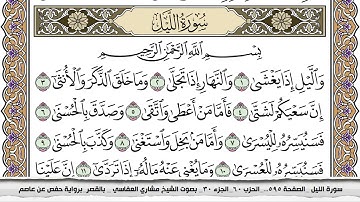 سُورَةُ اللَّيْلِ
بِسْمِ اللَّهِ الرَّحْمَٰنِ الرَّحِيمِ
وَاللَّيْلِ إِذَا يَغْشَىٰ ١ وَالنَّهَارِ إِذَا تَجَلَّىٰ ٢ وَمَا خَلَقَ الذَّكَرَ وَالْأُنثَىٰ ٣
إِنَّ سَعْيَكُمْ لَشَتَّىٰ ٤ فَأَمَّا مَنْ أَعْطَىٰ وَاتَّقَىٰ ٥ وَصَدَّقَ بِالْحُسْنَىٰ ٦
فَسَنُيَسِّرُهُ لِلْيُسْرَىٰ ٧ وَأَمَّا مَن بَخِلَ وَاسْتَغْنَىٰ ٨ وَكَذَّبَ بِالْحُسْنَىٰ ٩
فَسَنُيَسِّرُهُ لِلْعُسْرَىٰ ١٠ وَمَا يُغْنِي عَنْهُ مَالُهُ إِذَا تَرَدَّىٰ ١١ إِنَّ عَلَيْنَا
سورة الليل . الصفحة ٥٩٥ .. الحزب ٦٠ . الجزء ٣٠ . بصوت الشيخ مشاري العفاسي .. بالقصر . برواية حفص عن عاصم